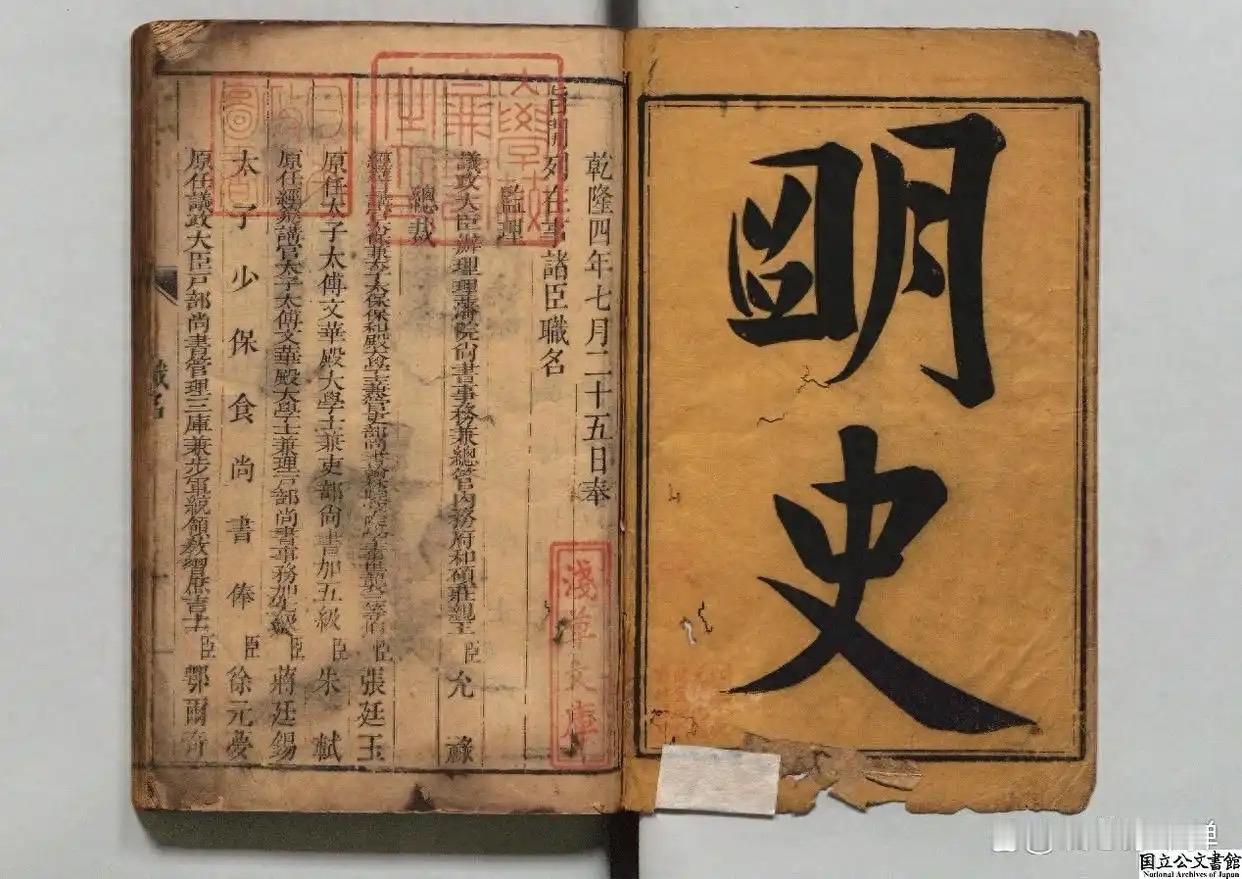 明史
乾隆四年七月二十五日奉
旨開列在事諸臣職名
監理
議政大臣辦理理藩院尚書事務兼總管內務府和碩莊親王臣允祿
總裁
經筵講官太保兼太子太保保和殿大學士兼管吏部尚書臣張廷玉
原任太子太傅文華殿大學士兼吏部尚書加五級臣朱軾
原任經筵講官太子太傅文華殿大學士兼理戶部尚書事務加七級臣蔣廷錫
太子少保食尚書俸臣徐元夢
原任議政大臣戶部尚書管理三庫兼步軍統領教習庶吉士臣鄂爾奇
職名
淺草文庫
国立公文書館
National Archives of Japan